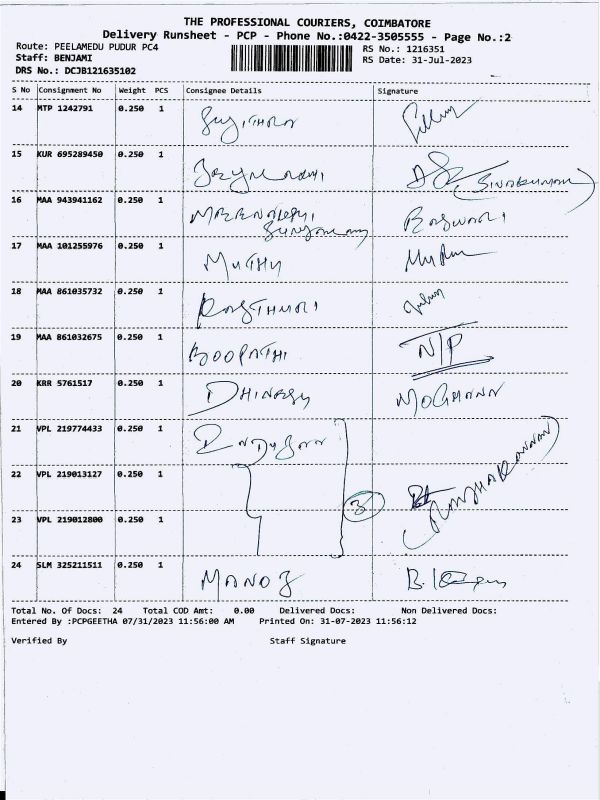 THE PROFESSIONAL COURIERS, COIMBATORE
Delivery Runsheet - PCP - Phone No.:0422-3505555 - Page No.:2
Route: PEELAMEDU PUDUR PC4 RS No.: 1216351
Staff: BENJAMI RS Date: 31-Jul-2023
DRS No.: DCJB121635102
S No Consignment No Weight PCS Consignee Details Signature
14 MTP 1242791 0.250 1
15 KUR 695289450 0.250 1 (SIVAKUMAR)
16 MAA 943941162 0.250 1
17 MAA 101255976 0.250 1 MUTHU
18 MAA 861035732 0.250 1
19 MAA 861032675 0.250 1 BOOPATHI N/P
20 KRR 5761517 0.250 1 DHINESH
21 VPL 219774433 0.250 1
22 VPL 219013127 0.250 1 3
23 VPL 219012800 0.250 1
24 SLM 325211511 0.250 1 MANOJ
Total No. Of Docs: 24 Total COD Amt: 0.00 Delivered Docs: Non Delivered Docs:
Entered By :PCPGEETHA 07/31/2023 11:56:00 AM Printed On: 31-07-2023 11:56:12
Verified By Staff Signature